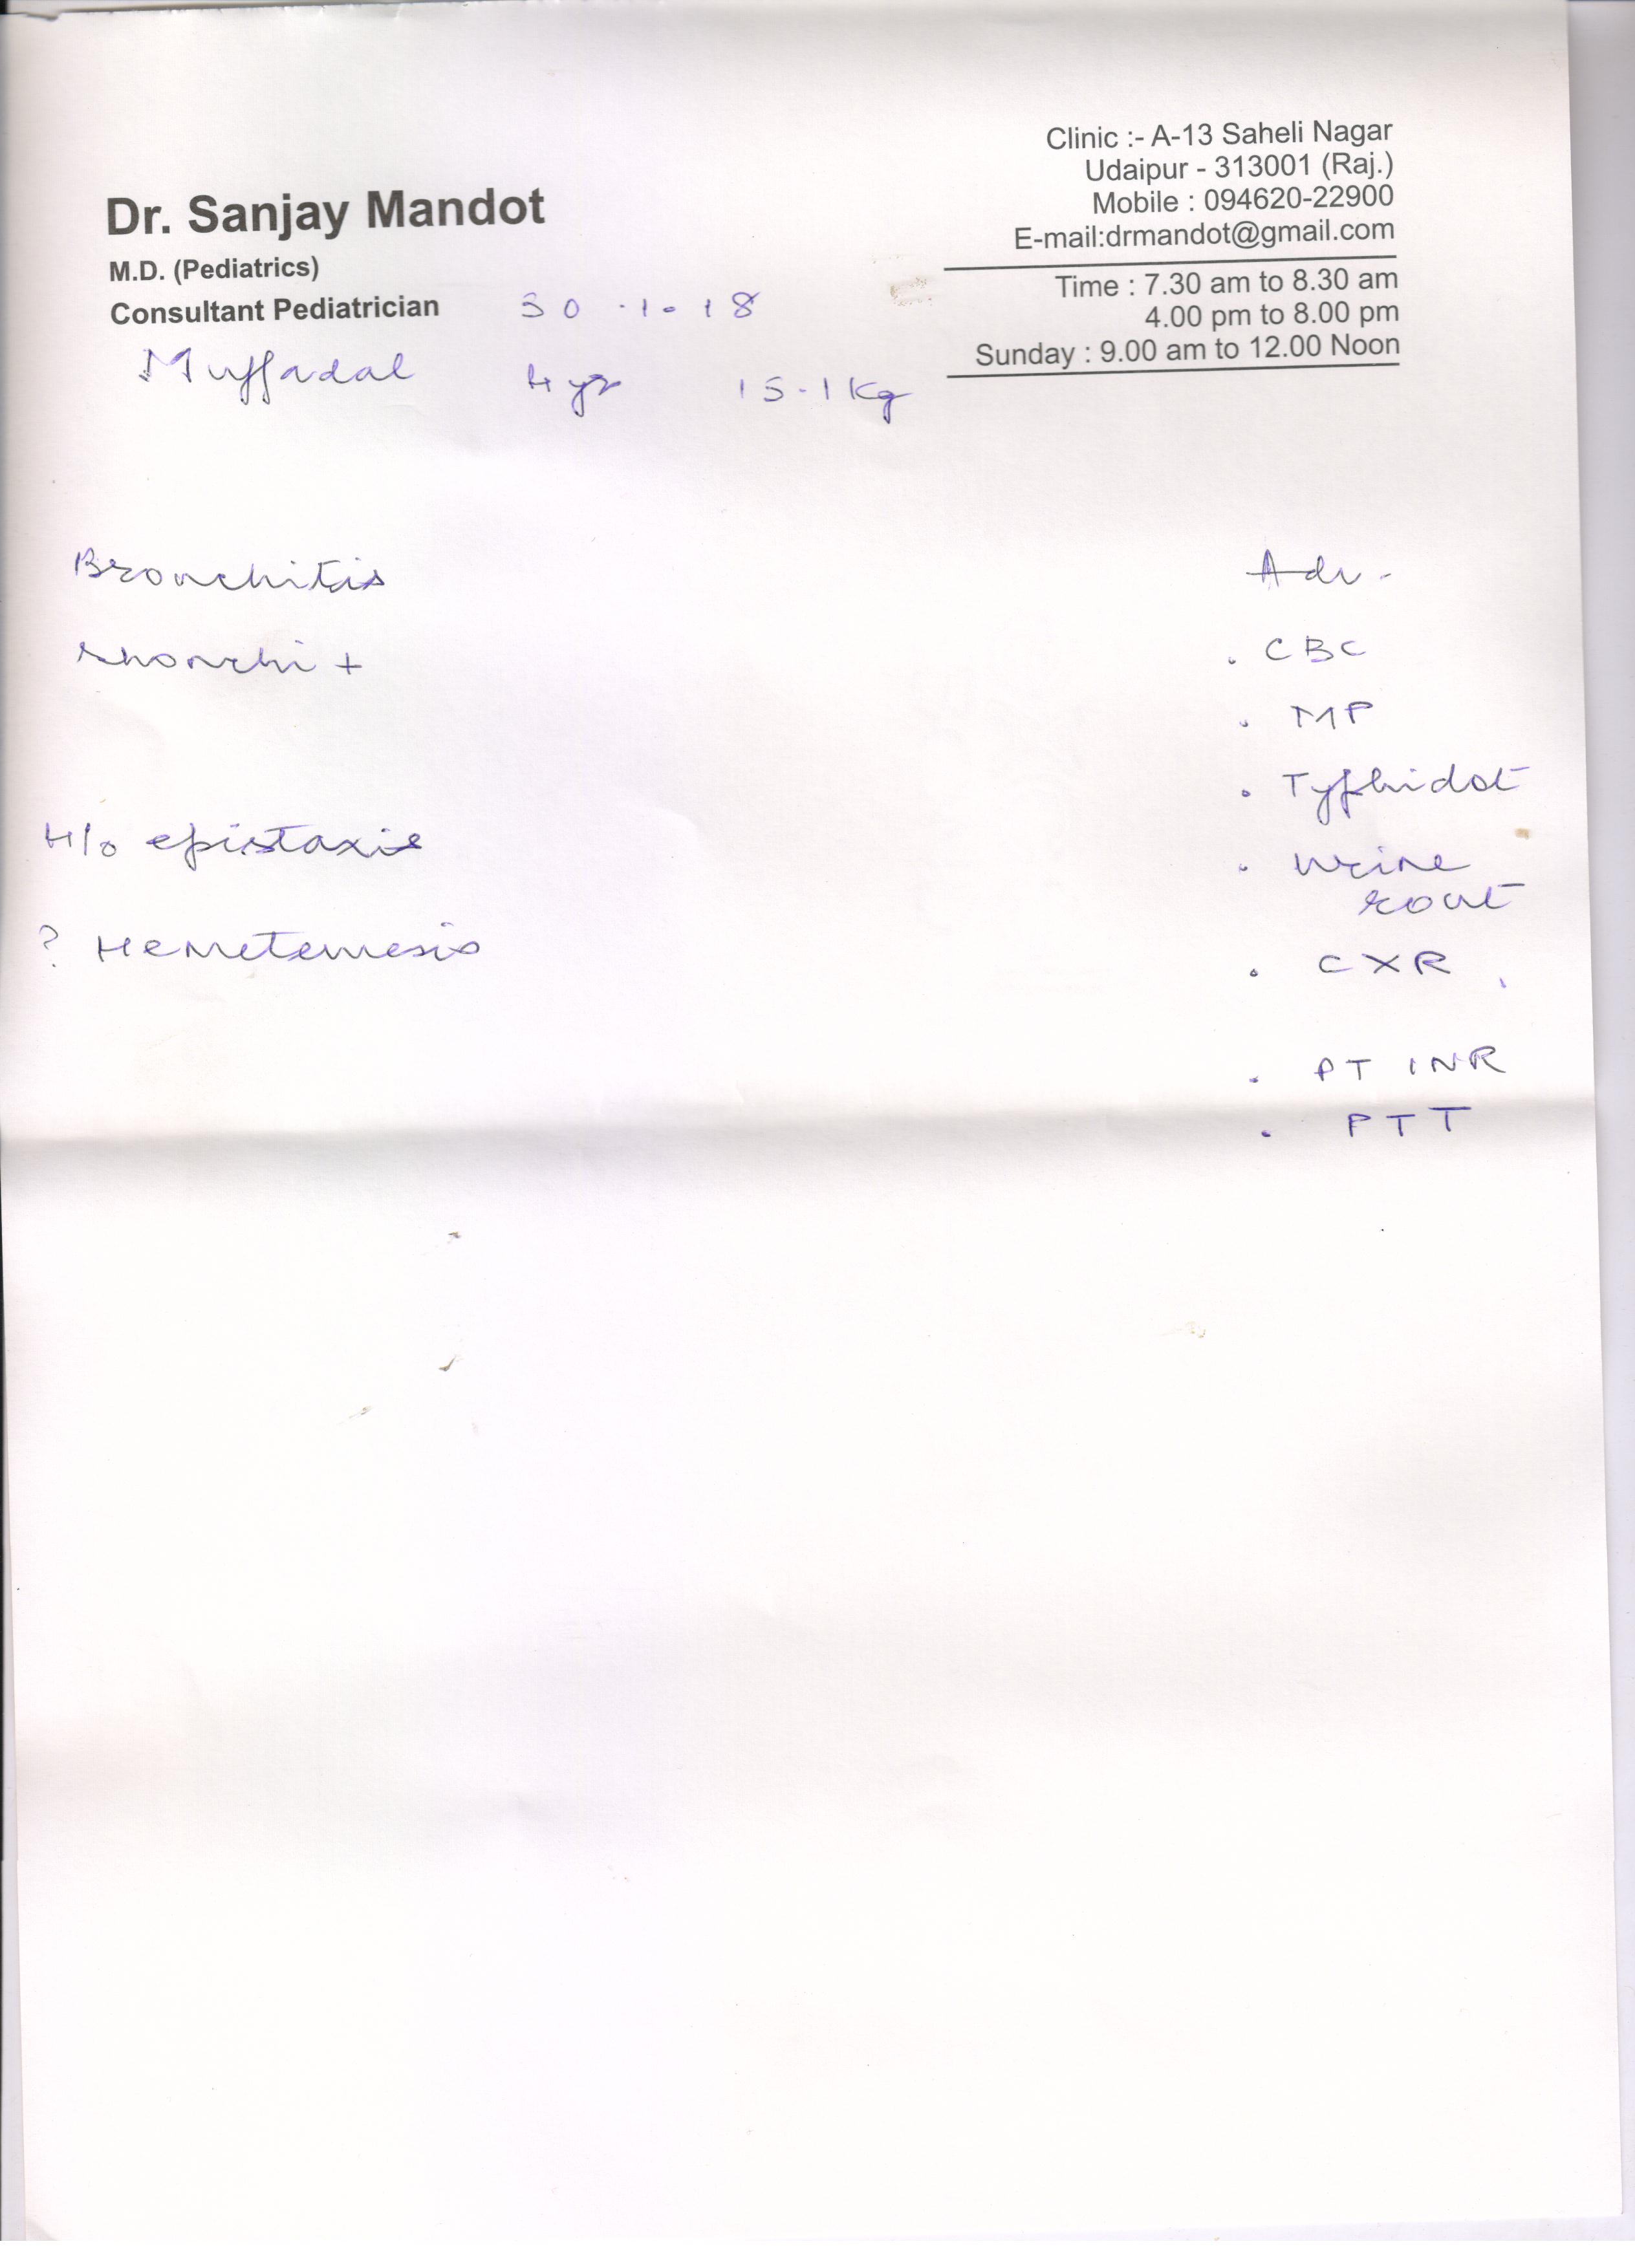 Dr. Sanjay Mandot
M.D. (Pediatrics)
Consultant Pediatrician
Clinic :- A-13 Saheli Nagar
Udaipur - 313001 (Raj.)
Mobile : 094620-22900
E-mail:drmandot@gmail.com
Time : 7.30 am to 8.30 am
4.00 pm to 8.00 pm
Sunday : 9.00 am to 12.00 Noon
30.1.18
Muffadal 4 yr 15.1 Kg
Bronchitis
rhonchi +
H/o epistaxis
? Hemetemesis
Adv.
. CBC
. MP
. Typhidot
. Urine
rout
. CXR
. PT INR
. PTT